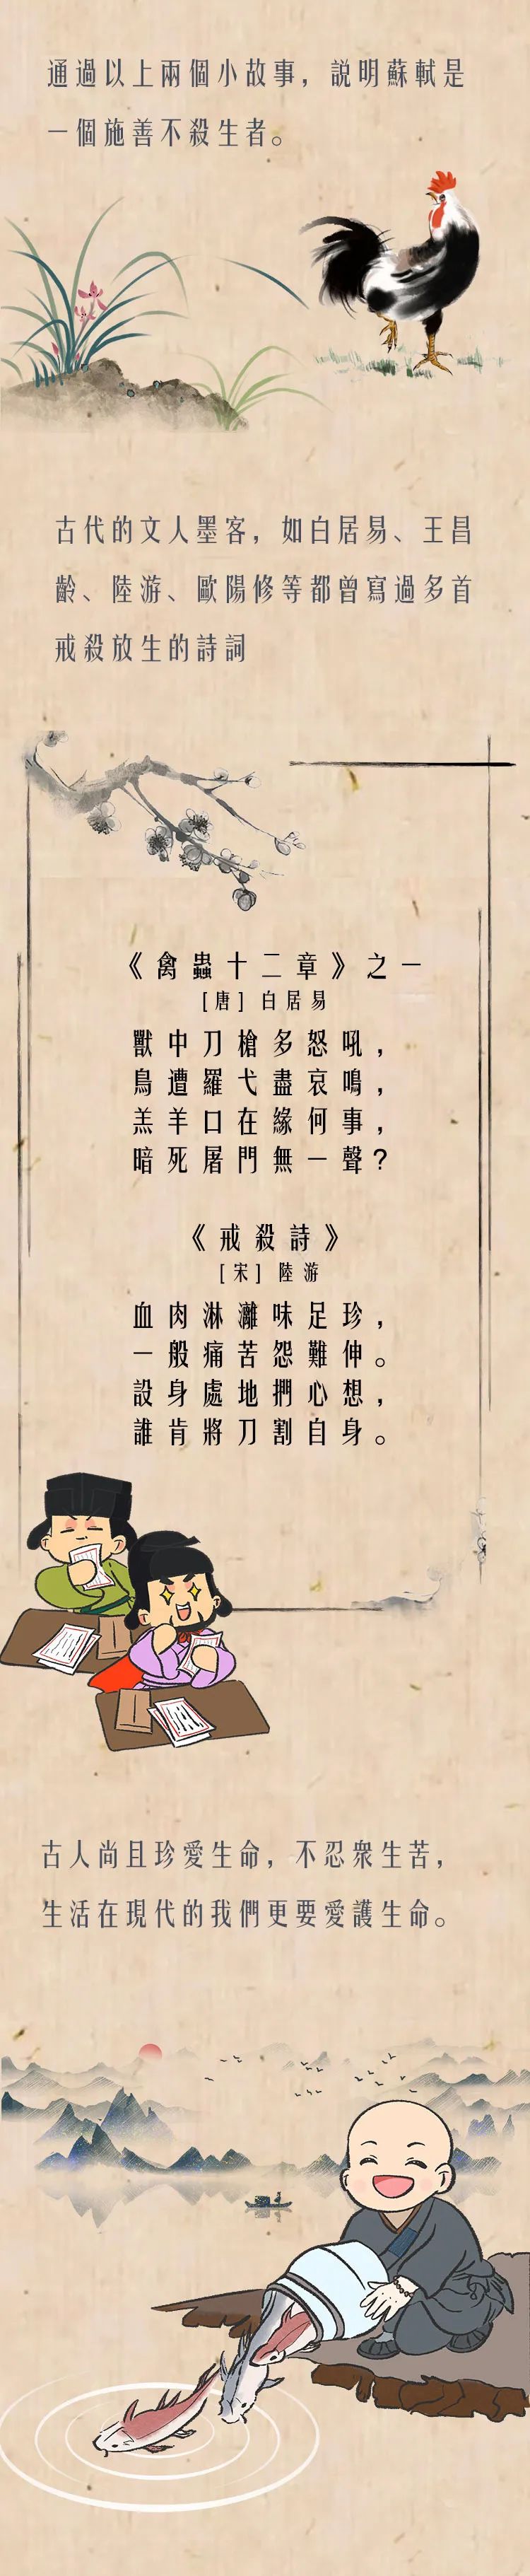 通過以上兩個小故事，説明蘇軾是
一個施善不殺生者。
古代的文人墨客，如白居易、王昌
齡、陸游、歐陽修等都曾寫過多首
戒殺放生的詩詞
《禽蟲十二章》之一
[唐] 白居易
獸中刀槍多怒吼，
鳥遭羅弋盡哀鳴，
羔羊口在緣何事，
暗死屠門無一聲?
《戒殺詩》
[宋] 陸游
血肉淋灕味足珍，
一般痛苦怨難伸。
設身處地捫心想，
誰肯將刀割自身。
古人尚且珍愛生命，不忍衆生苦，
生活在現代的我們更要愛護生命。